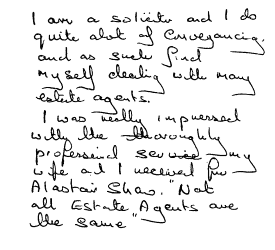 I am a solicitor and I do
quite alot of Conveyancing,
and as such find
myself dealing with many
estate agents.
I was really impressed
with the thoroughly
professional service my
wife and I received from
Alastair Shaw. "Not
all Estate Agents are
the same"